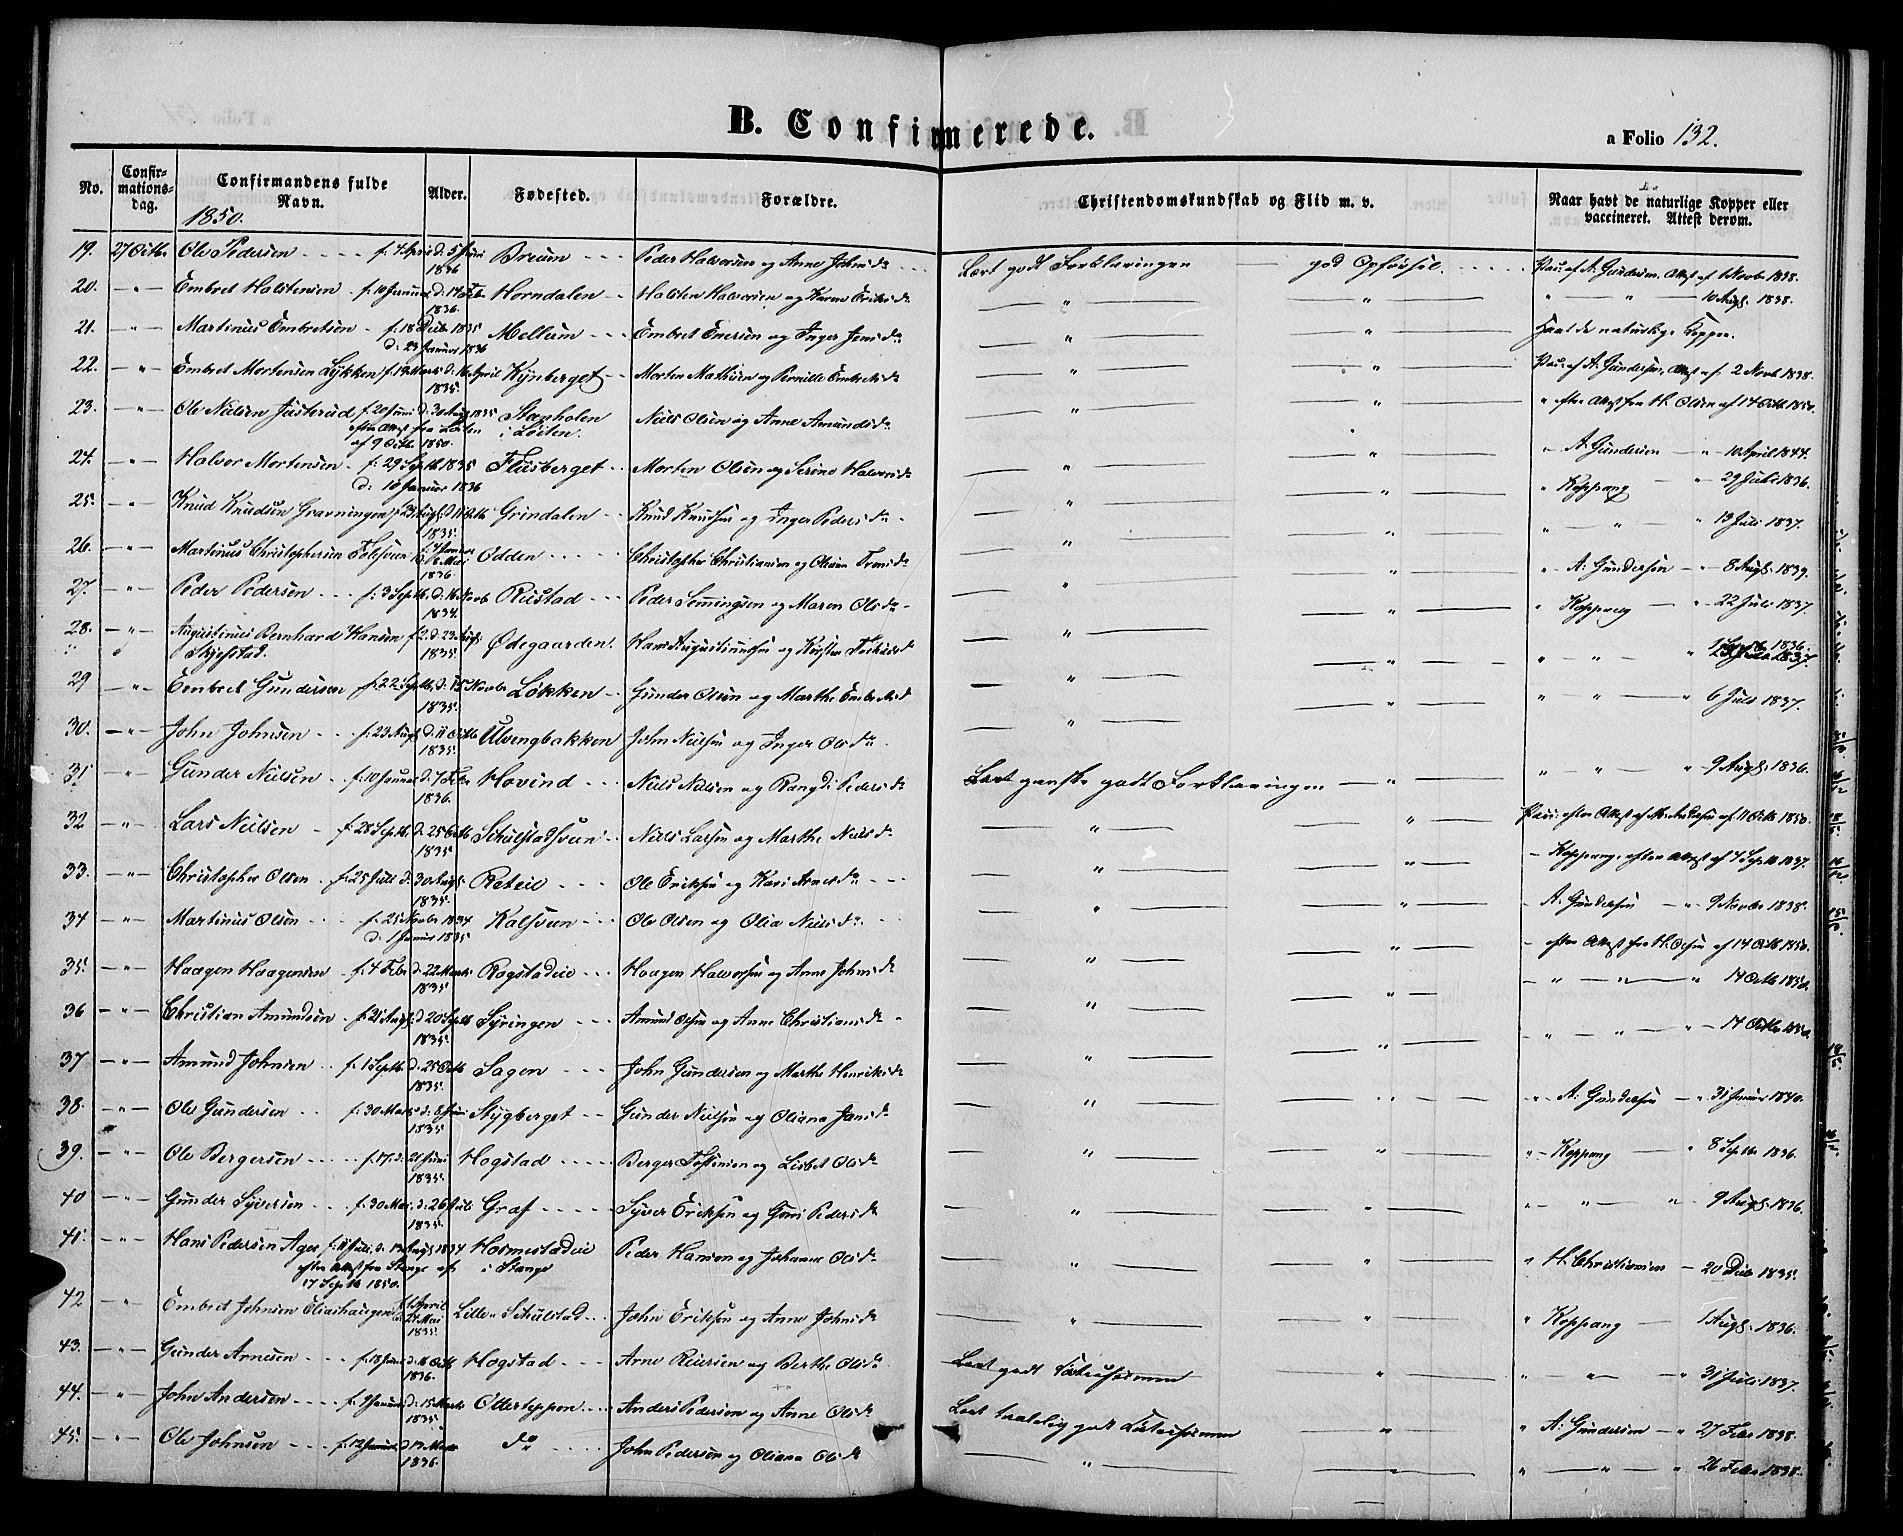 B. Confirmerede.
a Folio 132.
No.
Confir-
mations-
dag.
Confirmandens fulde
Navn.
Alder.
Fødested.
Forældre.
Christendomskundskab og Flid m. v.
Naar havt de naturlige Kopper eller
vaccineret. Attest derom.
1850.
19. 27 Octbr Ole Pedersen f. 4 April d. 5 Juni 1836 Peder Halvorsen og Anne Johnsdr Lært godt Forklaringen god Opførsel. Vac. af A. Gundersen. Attest af 1 Novbr 1838.
20. — " — Embret Halstensen f. 10 Januar d. 14 Febr 1836. Horndalen Halsten Halvorsen og Karen Eriksdr — " — — " — " — " — 10 Augs. 1838.
21. — " — Martinus Embretsen f. 18 Decbr 1835 d. 23 Januar 1836 Mellum Embret Enersen og Inger Jensdr — " — — " — Havt de naturlige Kopper.
22. — " — Embret Mortensen Løkken f. 19 Marts d. 16 April 1835. Kynberget Morten Mathisen og Pernille Embretsdr — " — — " — Vac. af A. Gundersen, Attest af 2 Novb 1838.
23. — " — Ole Nielsen Justerud f. 20 Juni d. 30 Aug 1835 efter Attest fra Løiten af 9 Octbr. 1850. Stenholen i Løiten. Niels Olsen og Anne Amundsdr — " — — " — " efter Attest fra H. Olsen af 14 Octb 1850.
24. — " — Halvor Mortensen f. 29 Septb 1835 d. 10 Januar 1836 Flisberget Morten Olsen og Serine Halvorsdr — " — — " — " A. Gundersen — " — 10 April 1844.
25. — " — Knud Knudsen Gravningen f. 23 Augs d. 11 Octb 1835. Grindalen Knud Knudsen og Inger Pedersdr — " — — " — " Koppang — " 29 Juli 1836.
26. — " — Martinus Christophersen f. 4 Januar d. 8 Mai 1836. Odden Christopher Christiansen og Oliana — " — — " — " — " — " 13 Juli 1837.
27. — " — Peder Pedersen f. 3 Septb. d. 16 Novbr 1834. Rustad Peder Semingsen og Maren Olsdr — " — — " — " A. Gundersen — " 8 Augs. 1839.
28. — " — Augustinus Bernhard Hansen f. 2. d. 23 Augs. 1835. Skjefstad. Ødegaarden. Hans Augustinusen og Kirsten — " — — " — " Koppang — " 22 Juli 1837.
29 — " — Embret Gundersen f. 22 Septb. d. 15 Novbr 1835. Løkken Gunder Olsen og Marthe Embretsd — " — — " — " — " — " 1 1836.
30. — " — John Johnsen f. 23 Augs d. 11 Octb 1835. Ulvengbakken John Nielsen og Inger Olsdr — " — — " — " " — " 6 Juli 1837.
31 — " — Gunder Nielsen f. 10 Januar d. 7 Febr 1836. Hovind Niels Nielsen og Rangdi Pedersdr Lært ganske godt Forklaringen — " — " — " — " 9 Augs. 1836.
32 — " — Lars Nielsen f. 28 Septb. d. 25 Octb 1835 Skulstadsveen Niels Larsen og Marthe Nielsdr — " — — " — Vac. efter Attest af af 11 Octb 1850.
33. — " — Christopher Olsen f. 25 Juli d. 30 Augs. 1835. Røteie Ole Eriksen og Kari Arnesdr — " — — " — — Koppang, efter Attest af 7 Septb 1837.
34 — " — Martinus Olsen f. 25 Novbr 1834 d. 1 Januar 1835 Kalsveen Ole Olsen og Olia Nielsdr — " — — " — — A. Gundersen — " 9 Novbr 1838.
35. — " — Haagen Haagensen f. 4 Febr d. 22 Marts 1835 Rogstadeie Haagen Halvorsen og Anne Johnsdr — " — — " — — efter Attest fra H. Olsen af 14 Octb 1850.
36 — " — Christian Amundsen f. 21 Augs. d. 20 Septb 1835. Syringen Amund Olsen og Anne Christiansdr — " — — " — — " — " — " 14 Octb 1850.
37 — " — Amund Johnsen f. 1 Septb. d. 25 Octb 1835. Sagen John Gundersen og Marthe Henriksdr — " — — " — — " — " — " — 14 Octb. 1850.
38. — " — Ole Gundersen f. 30 Marts d. 8 Juni 1835 Stygberget Gunder Nielsen og Oliana Jansdr — " — — " — " — A. Gundersen — " 31 Januar 1840.
39. — " — Ole Bergersen f. 17. d. 21 Juni 1835. Hogstad Berger og Lisbet Olsdr — " — — " — " — Koppang — " 8 Septb. 1836.
40 — " — Gunder Syversen f. 30 Mai d. 26 Juli 1835. Græf Syver Eriksen og Goni Pedersdr — " — — " — " — " — " 9 Augs. 1836.
41. — " — Hans Pedersen Ager f. 11 Juli d. 17 Augs. 1834 efter Attest fra Stange af 17 Septb 1850. Holmestadeie i Stange Peder Hansen og Johanne Olsdr — " — — " — " H. Christiansen — 20 Decbr 1835.
42 — " — Embret Johnsen Eliashaugen f. 1 April d. 24 Mai 1835. Lille-Skulstad John Eriksen og Anne Johnsdr — " — — " — " Koppang — 1 Augs. 1836.
43. — " — Gunder Arnesen f. 18 Juni d. 16 Octb 1836. Hogstad Arne Reiersen og Berthe Olsdr Lært godt — " — " — " — " 31 Juli 1837.
44. — " — John Andersen f. 9 Januar d. 15 Marts 1835. Ottertoppen Anders Pedersen og Anne Olsdr Lært taalelig godt — " — " A. Gundersen — " 27 Febr 1838.
45. — " — Ole Johnsen f. 12 Januar d. 13 Marts 1836. do John Pedersen og Oliana Olsdr — " — — " — " — " — " 26 Febr 1838.